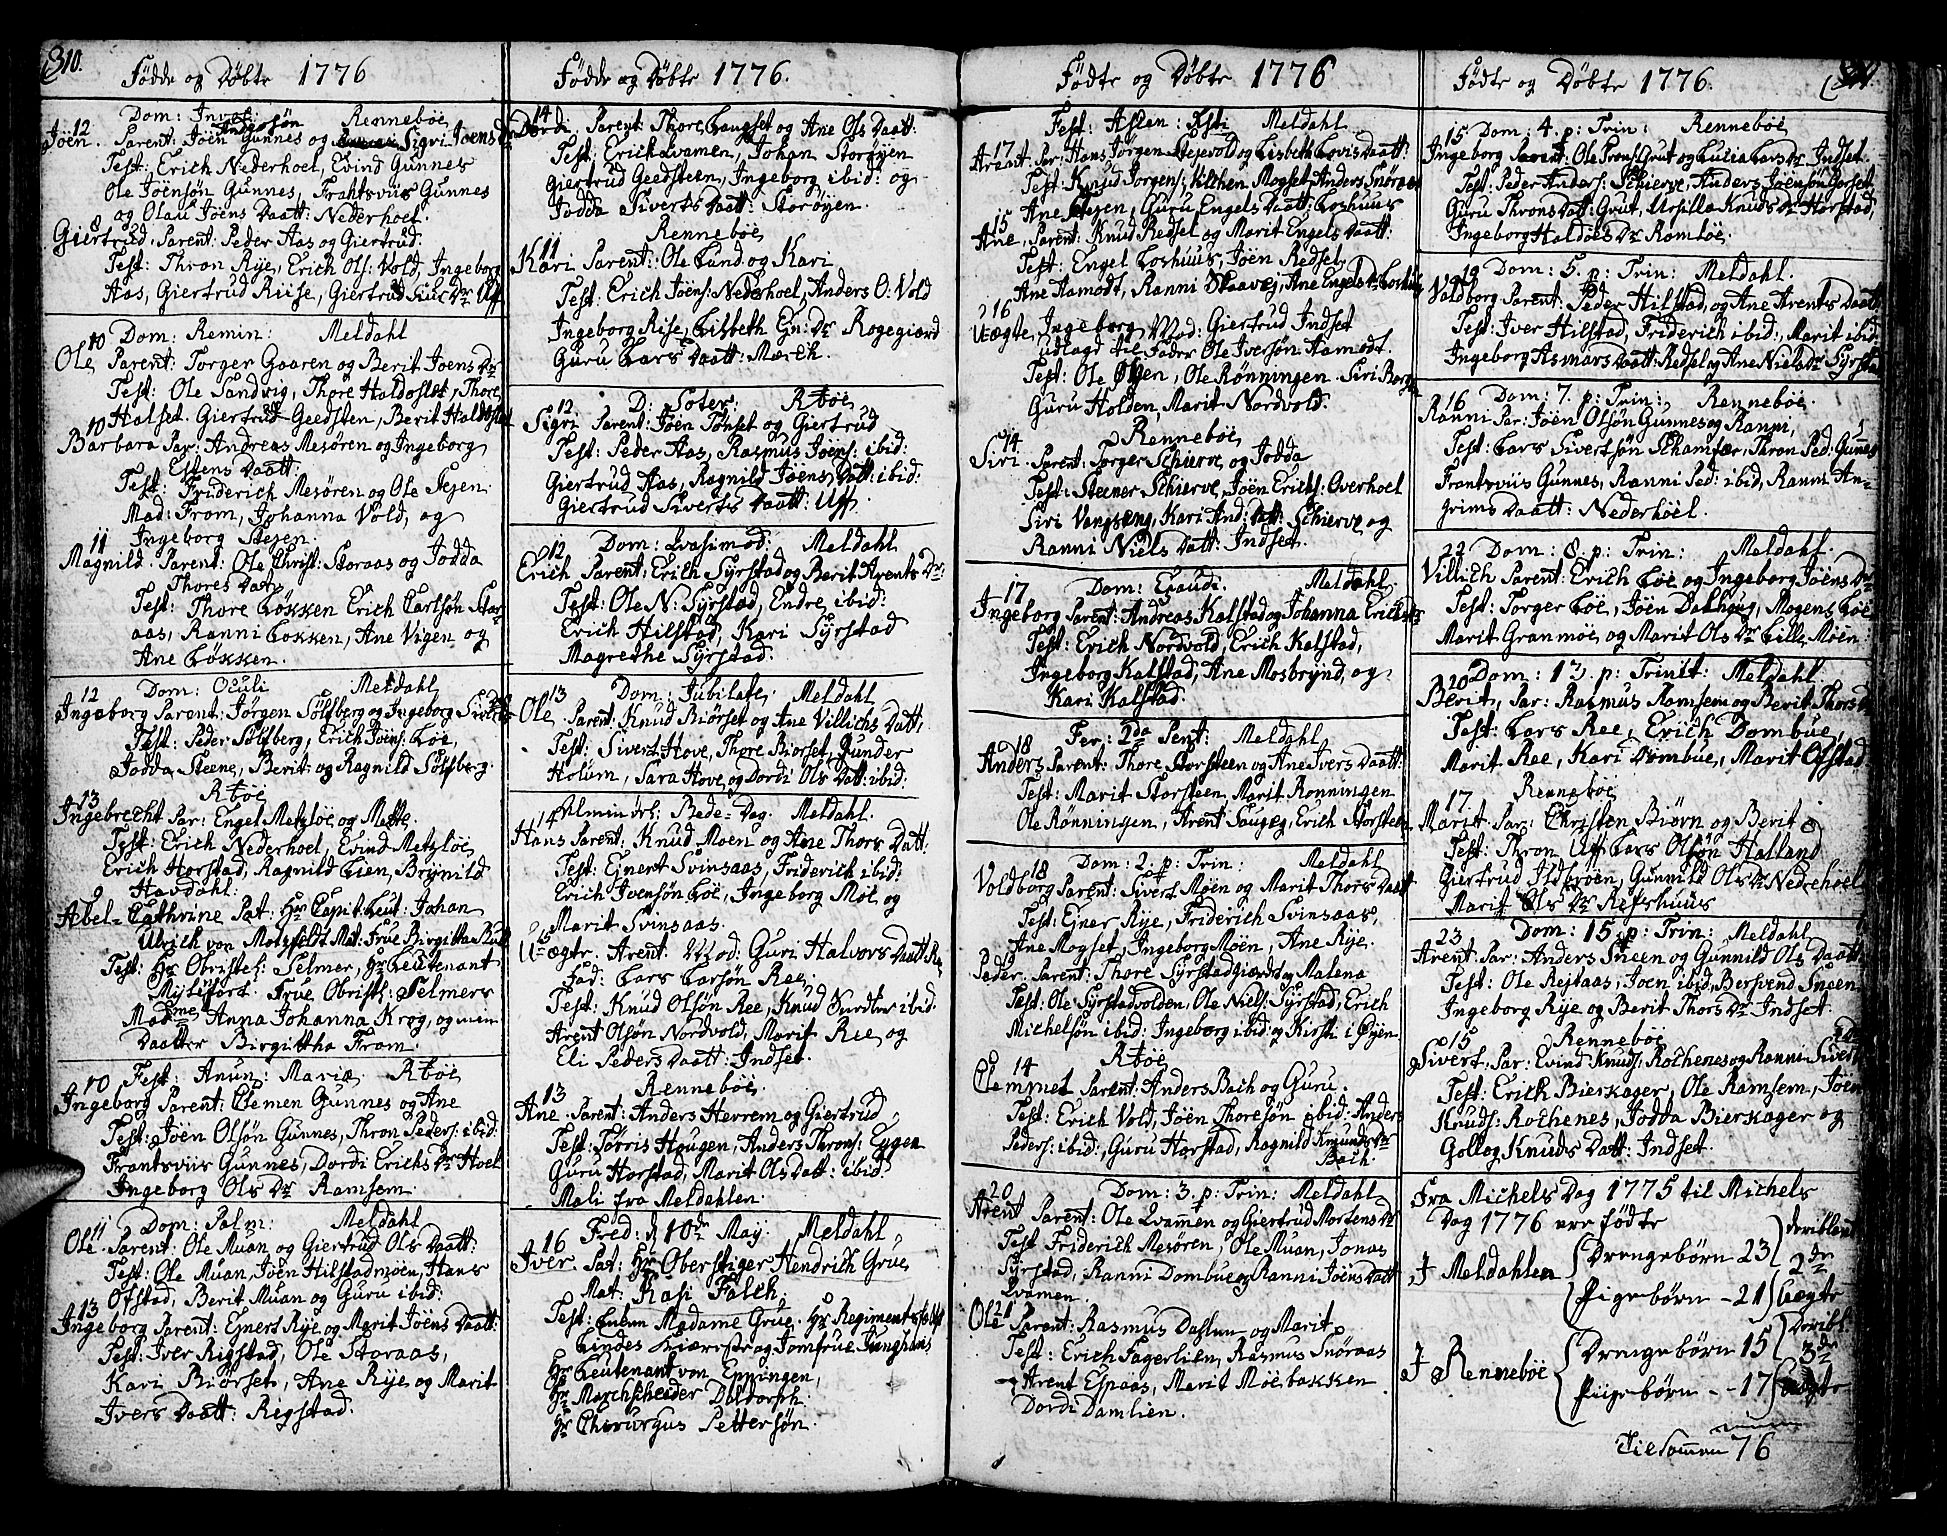 310.
Födde og Döbte 1776
Dom: Invoc: Rennebøe
12 Andersön
Jöen. Parent: Jöen Gunnes og Sigri Joens Dr
Test: Erich Nederhoel, Evind Gunnes
Ole Jöensön Gunnes, Frantsviis Gunnes
og Olau Jöens Daatt: Nederhoel.
8
Giertrud. Parent: Peder Aas og Giertrud.
Test: Thron Rÿe, Erich Ols: Vold, Ingeborg
Aas, Giertrud Riise, Giertrud Siur Dr Uff
Dom: Remin: Meldahl
10
Ole, Parent: Torger Gaaren og Berit Joens Dr
Test: Ole Sandvig, Thore Haldoslet, Thore
Halset. Giertrud Geedsten, Berit Haldoslet
10
Barbara Par: Andreas Mesören og Ingeborg
Estens Daatt:
Test: Friderich Mesören og Ole Stejen
Mad: From, Johanna Vold, og
Ingeborg Stejen.
11
Magnild. Parent: Ole Christ: Storaas og Jodda
Thores Datt
Test: Thore Lökken Erich Carlsön Stor-
aas, Ranni Lokken, Ane Vigen og
Ane Lökken.
Dom: Oculi Meldahl
12
Ingeborg Parent: Jörgen Sölfberg og Ingeborg Siverts Dr
Test: Peder Sölfberg, Erich Joens: Löe,
Jodda Steene, Berit og Ragnild Sölfberg.
Rböe
13
Ingebrecht Par: Engel Metzlöe og Mette.
Test: Erich Nederhoel, Evind Metzlöe,
Erich Horstad, Ragnild Lien, Brÿnild
Havdahl:
9
Abel-Cathrine Pat: Hr Capit: Leut: Johan
Ulrich von Motzfeldt Mat: Frue Birgitha Bull
Test: Hr Obristel: Selmer, Hr Leutenant
Mÿlefort. Frue Obristl: Selmers
Madme Anna Johanna Krog, og min
Daatter Birgittha From.
Fest: Anun: Mariæ Rböe
10
Ingeborg Parent: Clemen Gunnes og Ane
Test: Jöen Olsön Gunnes, Thron Peders: ibid:
Frantsviis Gunnes, Dordi Erichs Dr Hoel
Ingeborg Ols Dr Ramsem.
Dom: Palm: Meldahl
11
Ole. Parent: Ole Muan og Giertrud Ols Daatt:
Test: Ole Muan, Jöen Hilstadmöen, Hans
Ofstad, Berit Muan og Guru ibid:
13
Ingeborg Parent: Ejnert Rÿe og Marit Jöens Daatt:
Test: Iver Rigstad, Ole Storaas,
Kari Biörset, Ane Rÿe, og Marit
Ivers Daatt: Regstad.
Födde og Döbte 1776.
14
Dordi Parent: Thore Langset og Ane Ols Daatt:
Test: Erich Qvamen, Johan Storöÿen
Giertrud Geedsteen, Ingeborg ibid: og
Jodda Siverts Daatt: Storöÿen.
Renneböe
11
Kari Parent: Ole Lund og Kari
Test: Erich Jöens: Nederhoel, Anders O: Vold
Ingeborg Rise, Lisbeth Ejn: Dr Rogegiærd
Guru Lars Daatt: Mærch.
D: Soter: Rböe
12
Sigri Parent: Jöen Tönset og Giertrud
Test: Peder Aas, Rasmus Jöens: ibid:
Giertrud Aas, Ragnild Jöens Datt: ibid:
Giertrud Siverts Daatt: Uff.
Dom: Qvasimod: Meldahl
12
Erich Parent: Erich Sÿrstad og Berit Arents Dr:
Test: Ole N: Sÿrstad, Endre ibid:
Erich Hilstad, Kari Sÿrstad
Magrethe Sÿrstad.
Dom: Jubilate, Meldahl
13
Ole, Parent: Knud Biörset og Ane Villichs Datt:
Test: Sivert Hove, Thore Biorset, Gunder
Holum, Sara Hove, og Dordi Ols Datt: ibid:
Almindel: Bede-Dag. Meldahl.
14
Hans Parent: Knud Moen og Ane Thors Datt:
Test: Ejnert Svinsaas, Friderich ibid:
Erich Joensön Löe, Ingeborg Möe, og
Marit Svinsaas.
15
U-ægte. Arent. Mod: Guri Halvors Daatt: Ree
Fad: Lars Larsön Ree.
Test: Knud Olsön Ree, Knud ibid:
Arent Olsön Nordvold, Marit Ree, og
Eli Peders Daatt: Indset.
Renneböe.
13
Ane. Parent: Anders Herrem og Giertrud
Test: Törris Hougen, Anders Throns: Eggen
Guru Horstad, Marit Ols Datt: ibid:
Mali fra Meldahlen.
Fred: d 10de Maÿ. Meldahl
16
Iver. Pat: Hr Oberstiger Hendrich Grue,
Mat: Kasi Falch.
Test: Madame Grue. Hr Regimentsfeldt
og Jomfrue Junghans
Hr Leutenant von Eppingen,
Hr Marchscheider Daldorph.
Hr Chirurgus Pettersön.
Födte og Döbte 1776
Fest: Asten: Xsti Meldahl
17
Arent. Par: Hans Jorgen Stejevold og Lisbeth Lovis Daatt:
Test: Knud Jorgens: Kilthen, Mogset, Anders Snöraas
Ane Stejen, Guru Engels Daatt: Loshuus
15
Ane, Parent: Knud Redsel og Marit Engels Daatt:
Test: Engel Loshuus, Jöen Redsel,
Ane Aamodt, Ranni Skaavej, Ane Engels Dr Loshuus
16
Uægte, Ingeborg Mod: Giertrud Indset
udlagd til Fader Ole Iversön Aamodt.
Test: Ole Öÿen, Ole Rönningen. Siri Borge
Guru Holden, Marit Nordvold.
Renneböe
14
Siri. Parent: Torger Schierve, og Jodda
Test: Steener Schierve, Jöen Erichs: Overhoel
Siri Vangseng, Kari And: Datt: Schierve og
Ranni Niels Datt: Indset.
Dom: Exaudi. Meldahl
17
Ingeborg Parent: Andreas Kalstad og Johanna Erichs Dr
Test: Erich Nordvold, Erich Kalstad,
Ingeborg Kalstad, Ane Mosbrÿnd, og
Kari Kalstad.
Fer: 2da Pent: Meldahl
18
Anders Parent: Thore Storsteen og Ane Ivers Daatt:
Test: Marit Storsteen, Marit Rönningen
Ole Rönningen, Arent Saugeg, Erich Storsteen
Dom: 2. p: Trin: Meldahl
18
Voldborg Parent: Sivert Möen og Marit Thors Daatt
Test: Ejner Rÿe, Friderich Svinsaas,
Ane Mogset, Ingeborg Möen, Ane Rÿe.
Peder. Parent: Thore Sÿrstadgiærdet og Malena
Test: Ole Sÿrstadvolden, Ole Niels: Sÿrstad, Erich
Michelsön ibid: Ingeborg ibid: og Kirsti i Öÿen
Rböe
14
Clemmet Parent: Anders Bach og Guru.
Test: Erich Vold, Jöen Thoresön ibid: Anders
Peders: ibid:, Guru Horstad, Ragnild Amunds Dr
Bach.
Dom: 3. p: Trin: Meldahl
20
Arent Parent: Ole Qvamen og Giertrud Mortens Dr
Test Friderich Mesören, Ole Muan, Jonas
Sÿrstad, Ranni Dombue og Ranni Jöens Datt
Qvamen.
21
Ole Parent: Rasmus Dahlen og Marit
Test: Erich Fagerlien, Rasmus Snöraas
Arent Espaas, Marit Möebakken
Dordi Damlien.
Födte og Döbte 1776.
15 Dom: 4. p: Trin: Renneböe
Ingeborg Parent: Ole Trons: Grut og Lucia Lars Dr Indset.
Test: Peder Anders: Schierve, Anders Jöensön Gorset,
Guru Throns Datt: Grut, Ursilla Knuds Dr Horstad,
Ingeborg Haldoes Dr Ramlöe.
19 Dom: 5. p: Trin: Meldahl.
Voldborg Parent: Peder Hilstad, og Ane Arents Daatt:
Test: Iver Hilstad, Friderich ibid:, Marit ibid:
Ingeborg Asmars Daatt: Redsel og Ane Niels Dr Sÿrstad
Dom: 7. p: Trin: Renneböe.
16
Ranni Par: Jöen Olsön Gunnes og Ranni,
Test: Lars Sivertsön Skamfær, Thron Ped: Gunnes
Frantsviis Gunnes, Ranni Ped: ibid, Ranni An-
grims Daatt: Nederhöel.
22 Dom: 8. p: Trin: Meldahl.
Villich Parent: Erich Löe og Ingeborg Jöens Dr
Test: Torger Löe, Jöen Dalhaug, Mogens Löe
Marit Granmöe, og Marit Ols Dr Lille Möen.
Dom: 13. p: Trinit: Meldahl.
20
Berit, Par: Rasmus Ramsem og Berit Thors Dr
Test: Lars Ree, Erich Dombue,
Marit Ree, Kari Dombue, Marit Ofstad
Renneböe
17.
Marit. Par: Christen Biörn og Berit
Test: Thron Uff Lars Olsön Halland
Giertrud Ildbröen, Gunnild Ols Dr Nederhoel
Marit Ols Dr Refshuus
23 Dom: 15. p: Trin: Meldahl
Arent Par: Anders Sneen og Gunnild Ols Daatt:
Test: Ole Restaas, Joen ibid, Bersvend Sneen
Ingeborg Rÿe og Berit Thors Dr Indset.
Renneböe
15
Sivert, Par: Evind Knuds: Rochenes og Ranni Siverts Datt
Test: Erich Bierkager, Ole Ramsem, Jöen
Knuds: Rochenes, Jodda Bierkager og
Gollog Knuds Datt: Indset.
Fra Michels Dag 1775 til Michels
Dag 1776 ere födte
I Meldahlen Drengebörn 23 deriblandt
Piigebörn - 21 2de Uægte
I Renneböe Drengebörn 15 deribl:
Piigebörn -- 17 3de Uægte
Tilsamen 76